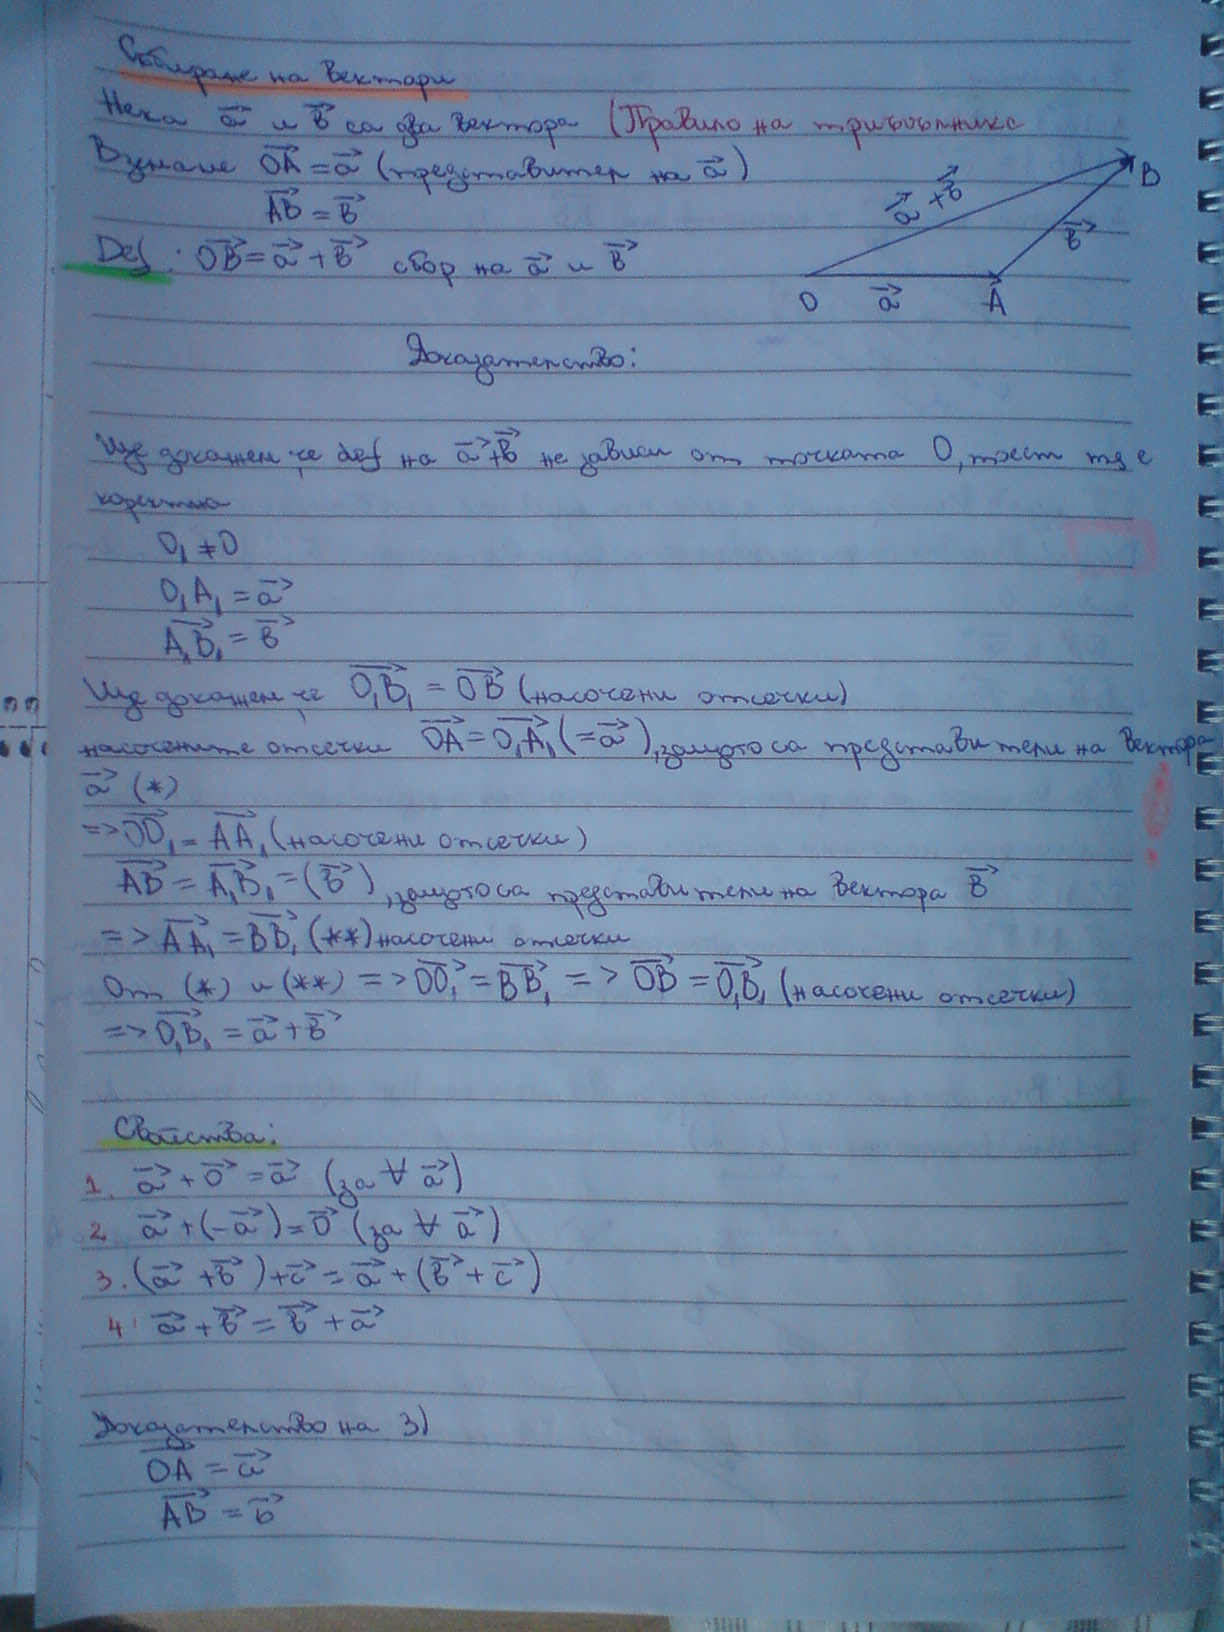 Събиране на вектори
Нека a⃗ и b⃗ са два вектора (Правило на триъгълника
Взимаме OA⃗ = a⃗ (представител на a⃗)
AB⃗ = b⃗
Def: OB⃗ = a⃗ + b⃗ сбор на a⃗ и b⃗
a⃗ + b⃗
B
b⃗
O a⃗ A
Доказателство:
Ще докажем, че def на a⃗ + b⃗ не зависи от точката O, тоест тя е
коректна
O₁ ≠ O
O₁A₁ = a⃗
A₁B₁⃗ = b⃗
Ще докажем, че O₁B₁⃗ = OB⃗ (насочени отсечки)
насочените отсечки OA⃗ = O₁A₁⃗ (= a⃗), защото са представители на вектора
a⃗ (*)
=> OO₁⃗ = AA₁⃗ (насочени отсечки)
AB⃗ = A₁B₁⃗ = (b⃗), защото са представители на вектора b⃗
=> AA₁⃗ = BB₁⃗ (**) насочени отсечки
От (*) и (**) => OO₁⃗ = BB₁⃗ => OB⃗ = O₁B₁⃗ (насочени отсечки)
=> O₁B₁⃗ = a⃗ + b⃗
Свойства:
1. a⃗ + o⃗ = a⃗ (за ∀ a⃗)
2 a⃗ + (-a⃗) = o⃗ (за ∀ a⃗)
3. (a⃗ + b⃗) + c⃗ = a⃗ + (b⃗ + c⃗)
4. a⃗ + b⃗ = b⃗ + a⃗
Доказателство на 3)
OA⃗ = a⃗
AB⃗ = b⃗